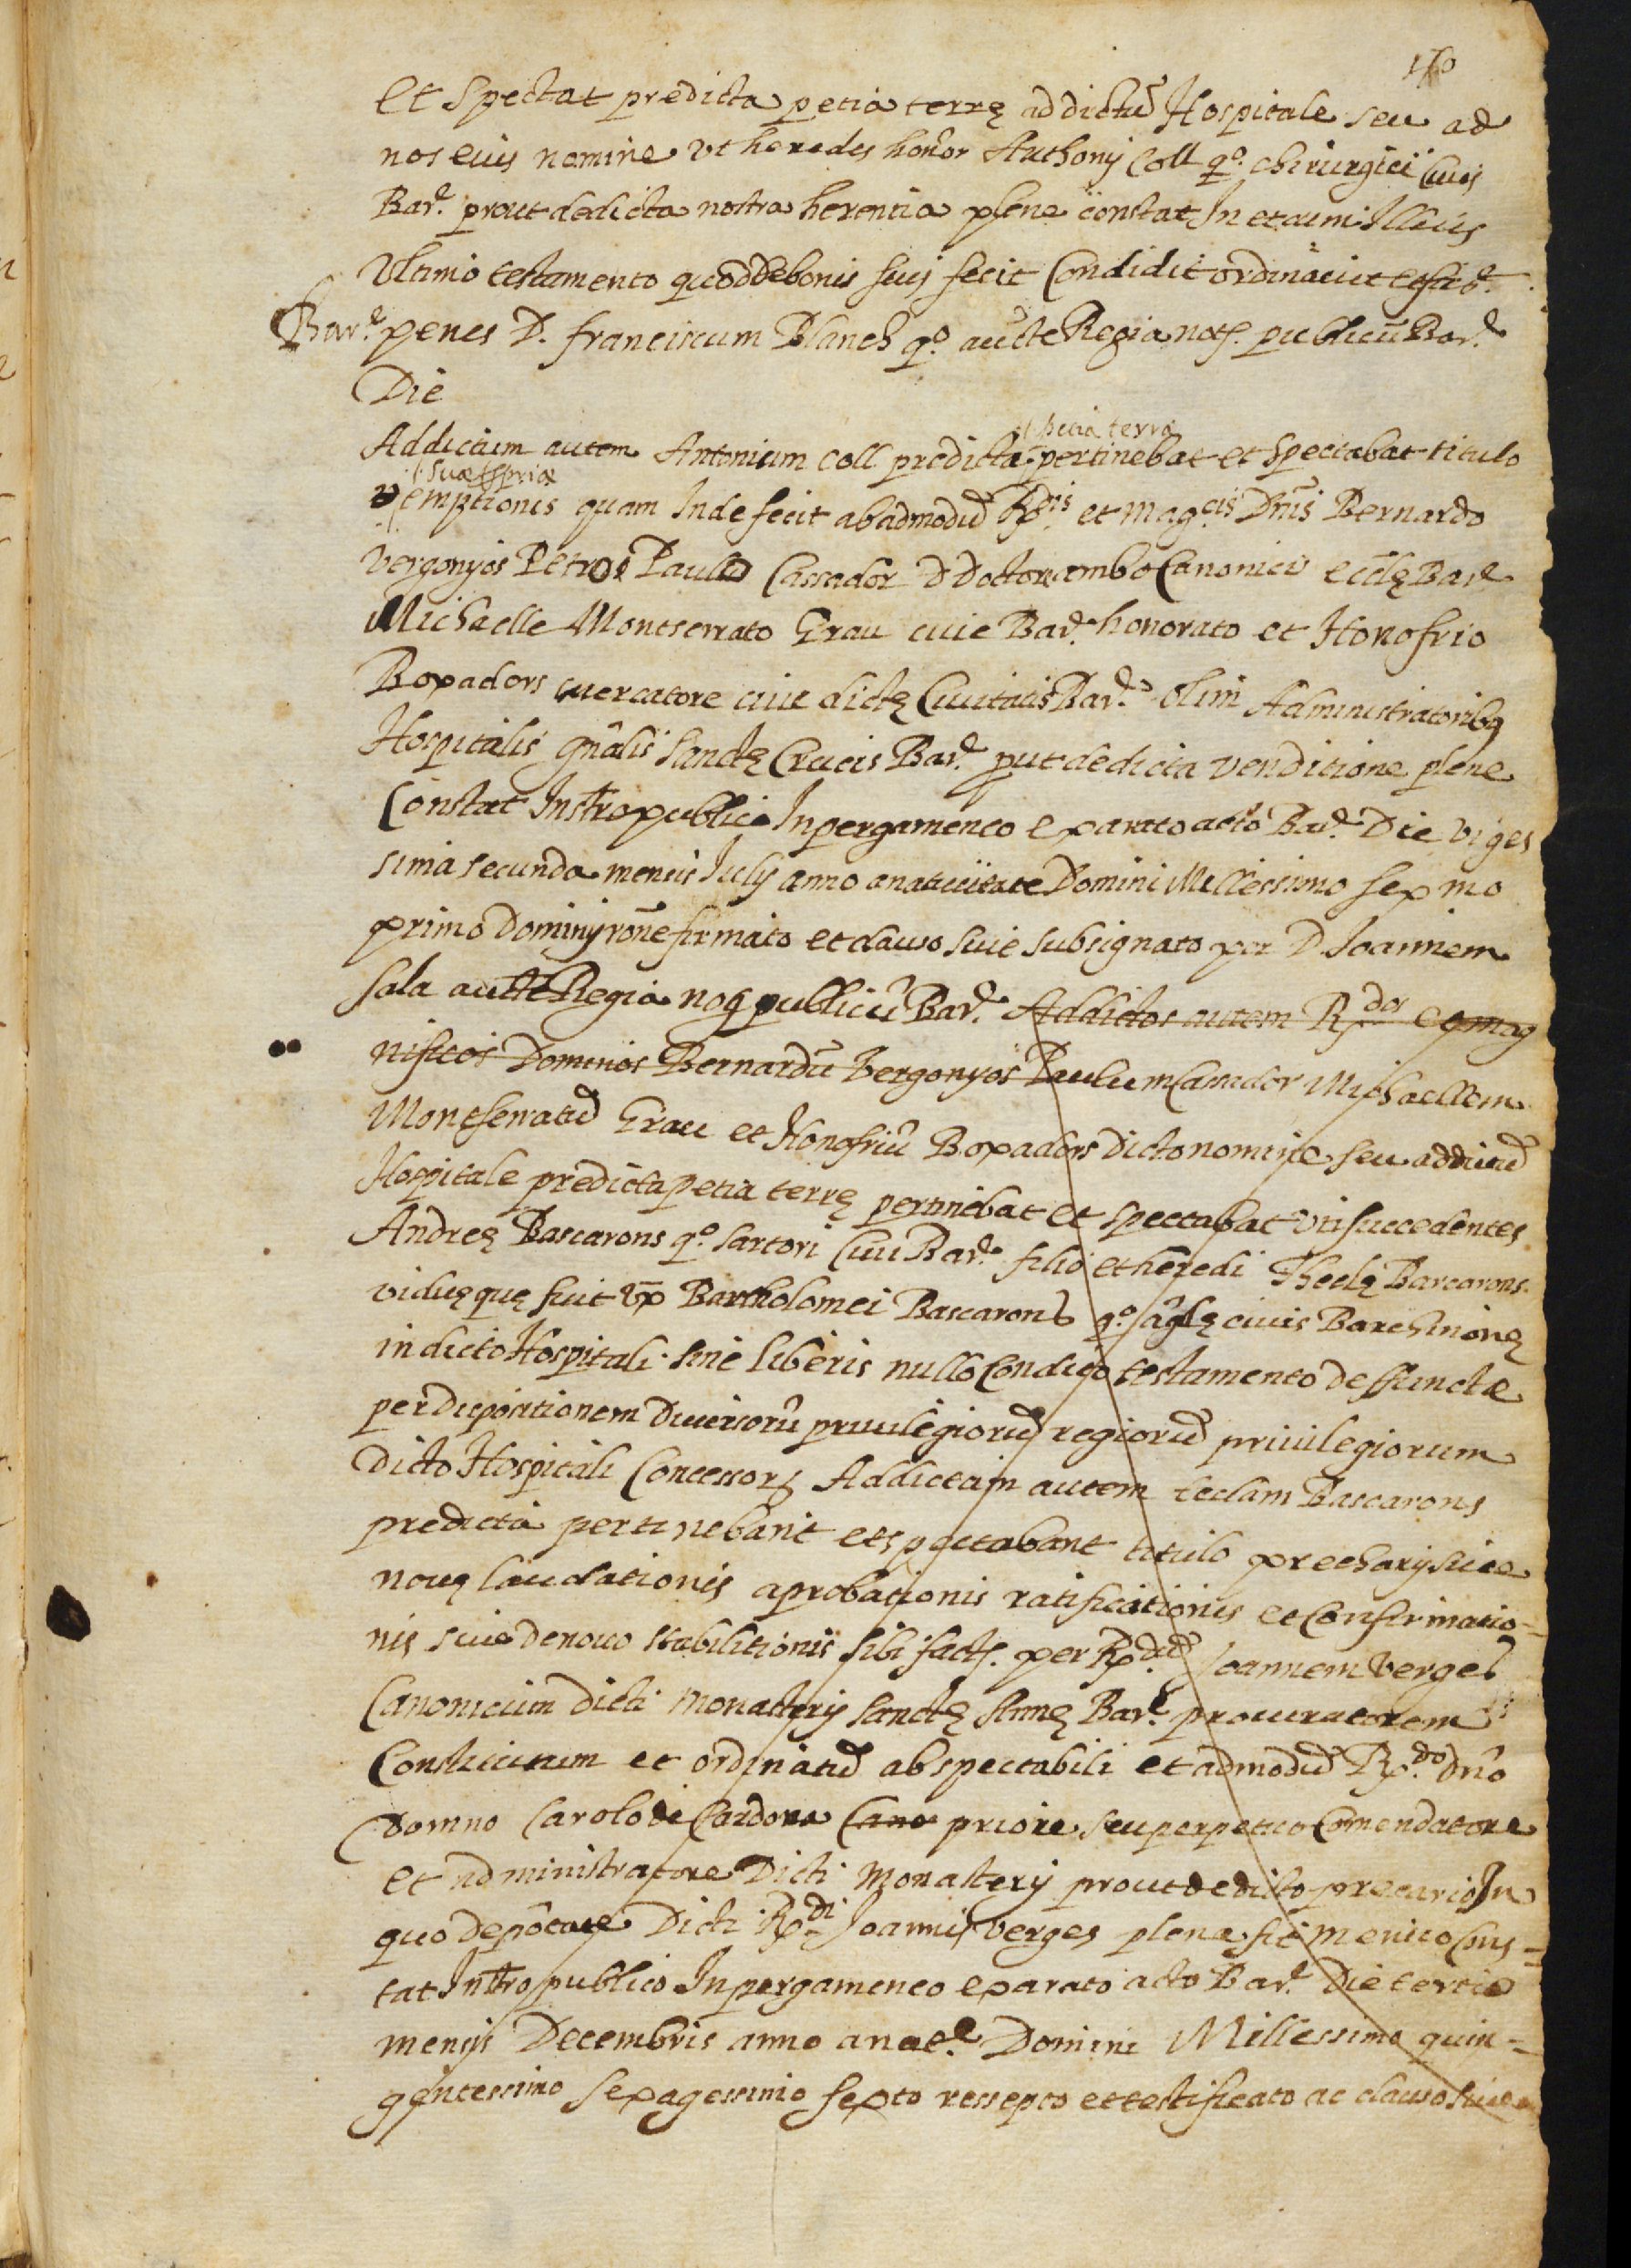 170
Et Spectat predicta petia terrę ad dictũ Hospitale seu ad
nos eius nomine vt heredes honor Anthonij Coll qº. chirurgici Ciuis
Barᵉ. prout de dicta nostra herentia plene constat In et cum Illius
Vltimo testamento quod de bonis suis fecit Condidit ordinauit
Barᵉ. penes D. franciscum Blanch qº. aucte Regia notᵐ. publicũ Barᵉ
Die
petia terra
Addictum autem Antonium coll predicta pertinebat et Spectabat titulo
emptionis quam Inde fecit ab admodũ Rᵈⁱˢ et magᶜⁱˢ Dnīs Bernardo
Vergonyos Petro Paulo Cassador D Doctore ambo Canonici ecclę Barᵉ
Michaelle Montserrato Grau ciue Barᵉ. honorato et Honofrio
Boxadors mercatore ciue dictę Ciuitatis Barᵉ. olim Administratoribꝫ
Hospitalis gñalis Sanctę Crucis Barᵉ. put de dicta venditione plene
Constat Instro publico In pergameneo exarato acto Barᵉ. Die viges
sima secunda mensis Iulij anno a natiuitate Domini Millessimo sexmo
primo Dominij rõne firmato et clauso siue subsignato per D. Joannem
Sala aucte Regia not publicũ Barᵉ. Addictos autem Rᵈᵒˢ et mag
nificos Dominos Bernardũ Vergonyos Paulum Cassador Michaellem
Montserratũ Grau et Honofriũ Boxadors Dicto nomine seu ad dictũ
Hospitale predicta petia terrę pertinebat et spectabat vti succedentes
Andreę Bascarons qº. sartori Ciui Barᵉ. filio et heredi Theclę Barcarons
viduę quę fuit vx̄ Bartholomei Bascarons qº. ciuis Barchinonę
in dicto Hospitali sine liberis nullo Condito testamento deffunctæ
per dispositionem Diuersorũ priuilegiorũ regiorũ priuilegiorum
Dicto Hospitali Concessorꝫ Addictam autem teclam Bascarons
predicta pertinebant et spectabant titulo precharij siue
nouę laudationis aprobationis ratificationis et Confirmatio=
nis siue de nouo stabilitionis sibi factᵉ. per Rᵈũ Joannem Verges
Canonicum dicti monasterij sanctę Annę Barᵉ. procuratorem
Constitutum et ordinatũ ab spectabili et admodũ Rᵈᵒ. dño
domno Carolo de Cardona Cano priore seu perpetuo Comendatore
et administratore Dicti monasterij prout de dicto precario In
quo de põtate Dicti Rᵈⁱ Joannis verges plena fit mentio Cons=
tat Instro publico In pergameneo exarato acto Barᵉ. Die tertio
mensis Decembris anno a natᵉ. Domini Millessimo quin=
gentessimo sexagessimo sexto ressepto et testificato ac clauso siue